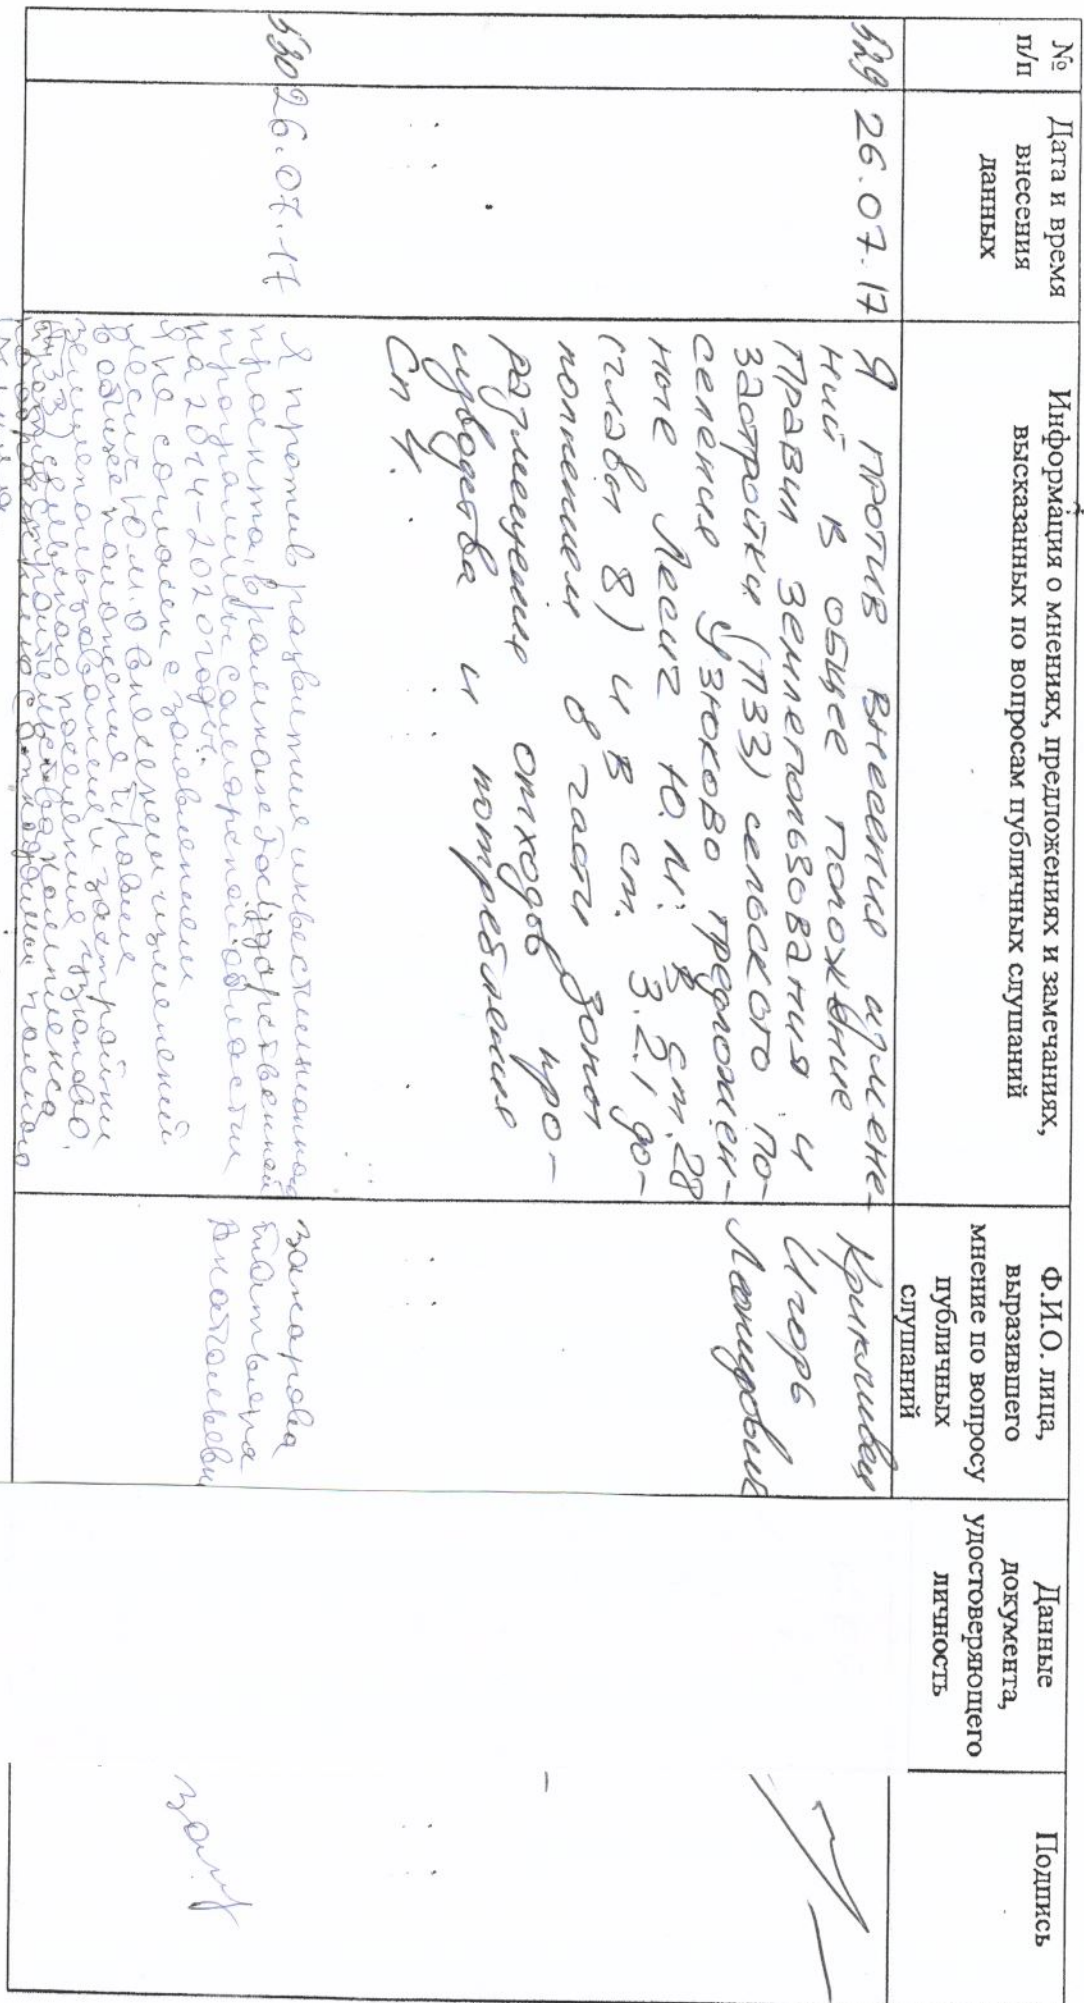 №
п/п
Дата и время
внесения
данных
Информация о мнениях, предложениях и замечаниях,
высказанных по вопросам публичных слушаний
Ф.И.О. лица,
выразившего
мнение по вопросу
публичных
слушаний
Данные
документа,
удостоверяющего
личность
Подпись
529
26.07.17
Я против внесения измене-
ний в общее положение
Правил землепользования и
застройки (ПЗЗ) сельского по-
селения Узюково предложен-
ные Лесиг Ю.М. в ст. 28
(главы 8) и в ст. 3.2.1 до-
полнением в части зоны
размещения отходов про-
изводства и потребления
Сп 4.
Игорь
Леонидович
530
26.07.17
Я против развития инвестиционного
проекта, в рамках Государственной
программы Самарской области
на 2014-2020 годы.
Я не согласен с заявлением
Лесиг Ю.М. о внесении изменений
в общее положение Правил
землепользования и застройки
(ПЗЗ) сельского поселения Узюково
Татьяна
Анатольевн